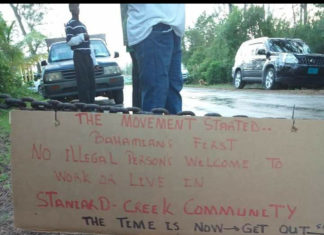 THE MOVEMENT STARTED..
BAHAMIANS FIRST
NO ILLEGAL PERSONS WELCOME TO
WORK OR LIVE IN
STANIARD-CREEK COMMUNITY
THE TIME IS NOW→GET OUT